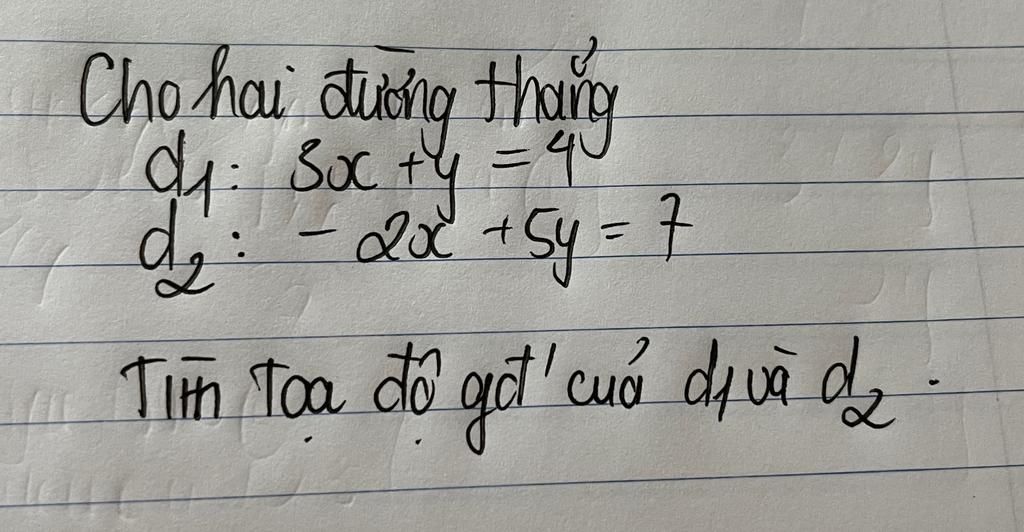 Cho hai đường thẳng
d1: 3x + y = 4
d2: - 2x + 5y = 7
Tìm Tọa độ gđ' của d1 và d2.